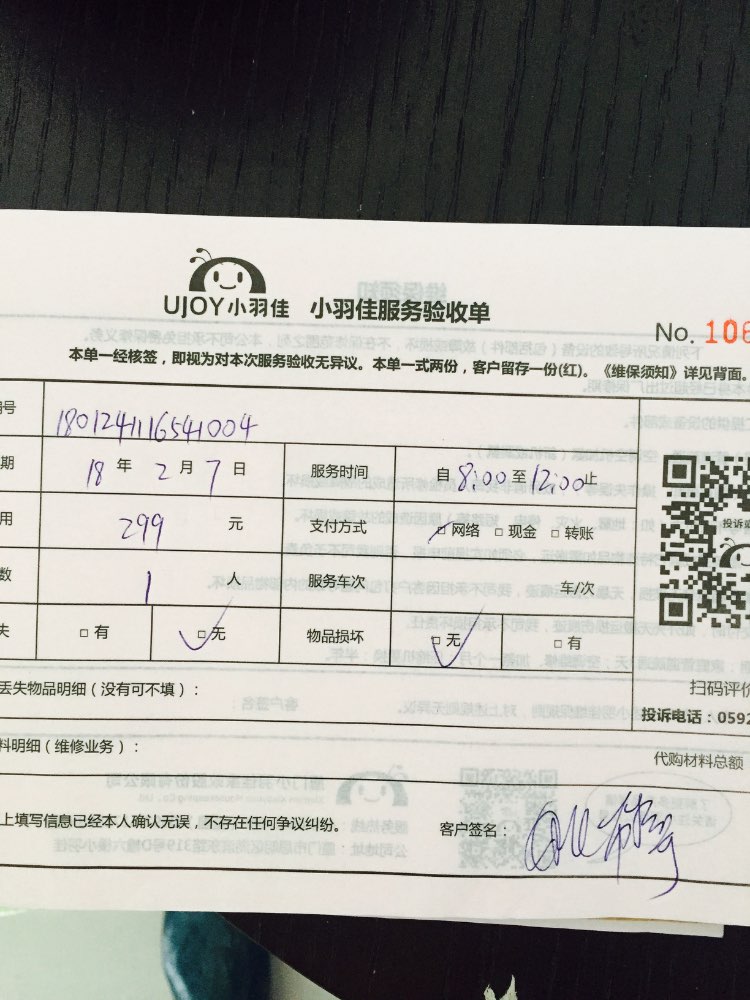 UJOY小羽佳 小羽佳服务验收单
No. 106
本单一经核签，即视为对本次服务验收无异议。本单一式两份，客户留存一份(红)。《维保须知》详见背面。
号 180124116541004
期 18 年 2 月 7 日 服务时间 自 8:00 至 12:00 止
用 299 元 支付方式 □ 网络 □ 现金 □ 转账
数 1 人 服务车次 车/次
失 □ 有 □ 无 物品损坏 □ 无 □ 有
投诉
扫码评价
丢失物品明细（没有可不填）：
投诉电话：0592
料明细（维修业务）：
代购材料总额
上填写信息已经本人确认无误，不存在任何争议纠纷。 客户签名：